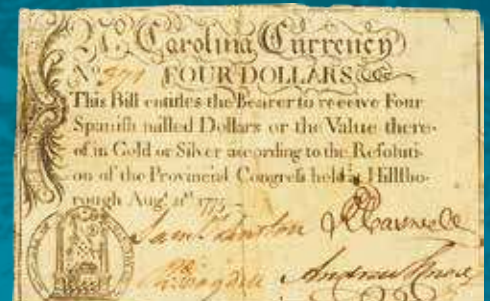 No. Carolina Currency
No. 371 FOUR DOLLARS
This Bill entitles the Bearer to receive Four
Spanish milled Dollars or the Value there-
of in Gold or Silver according to the Resoluti-
on of the Provincial Congress held at Hillsbo-
rough Augt. 21st. 1775
Sam Johnston R Caswell
Andrew Knox